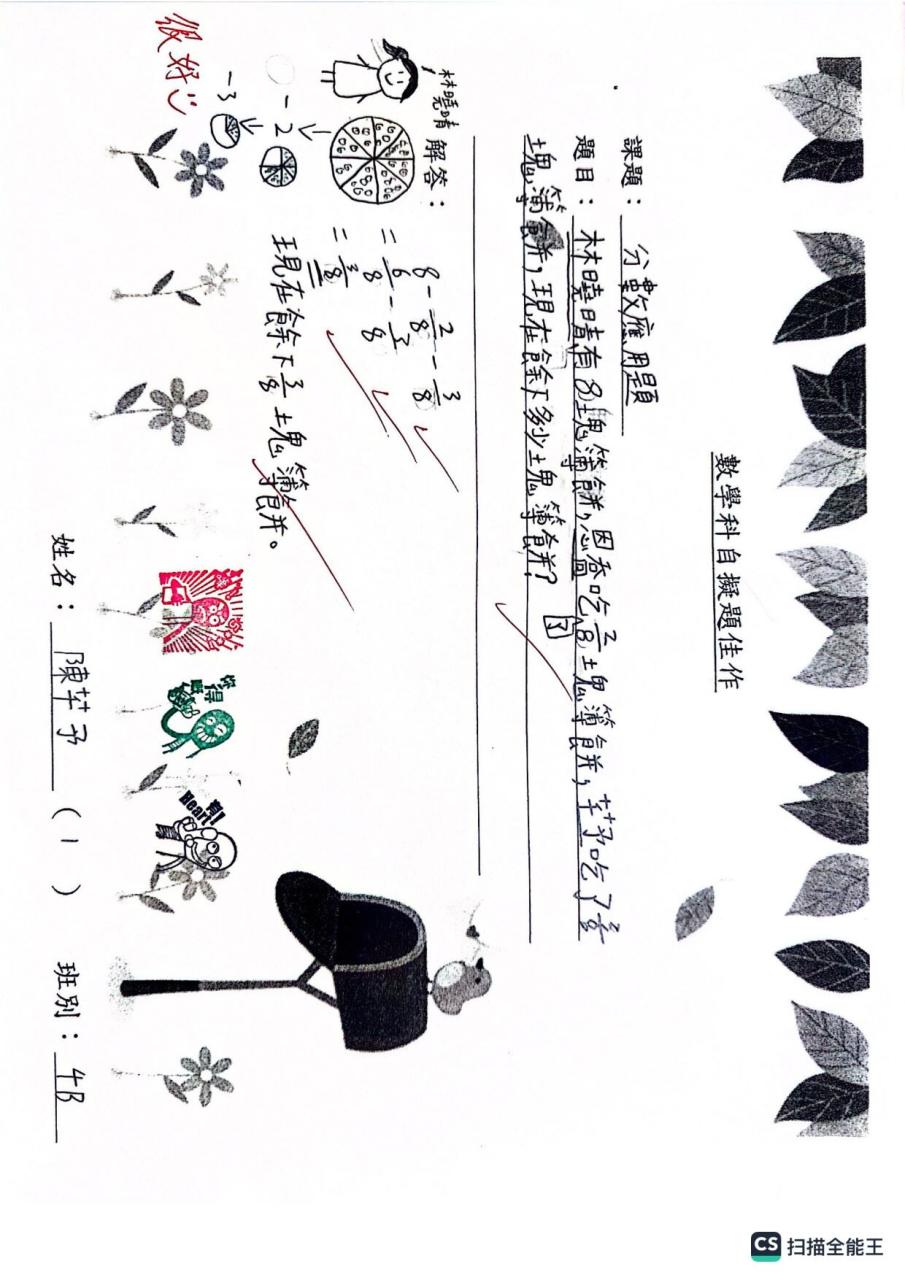 數學科自擬題佳作
課題：分數應用題
題目：林曉晴有8塊薄餅，恩喬吃了2/8塊薄餅，芊予吃了3/8
塊薄餅，現在餘下多少塊薄餅？
林曉晴
解答：
8 - 2/8 - 3/8
= 6/8 - 3/8
= 3/8
現在餘下3/8塊薄餅。
-2
-3
很好
姓名：陳芊予（1） 班別：4B
CS 扫描全能王